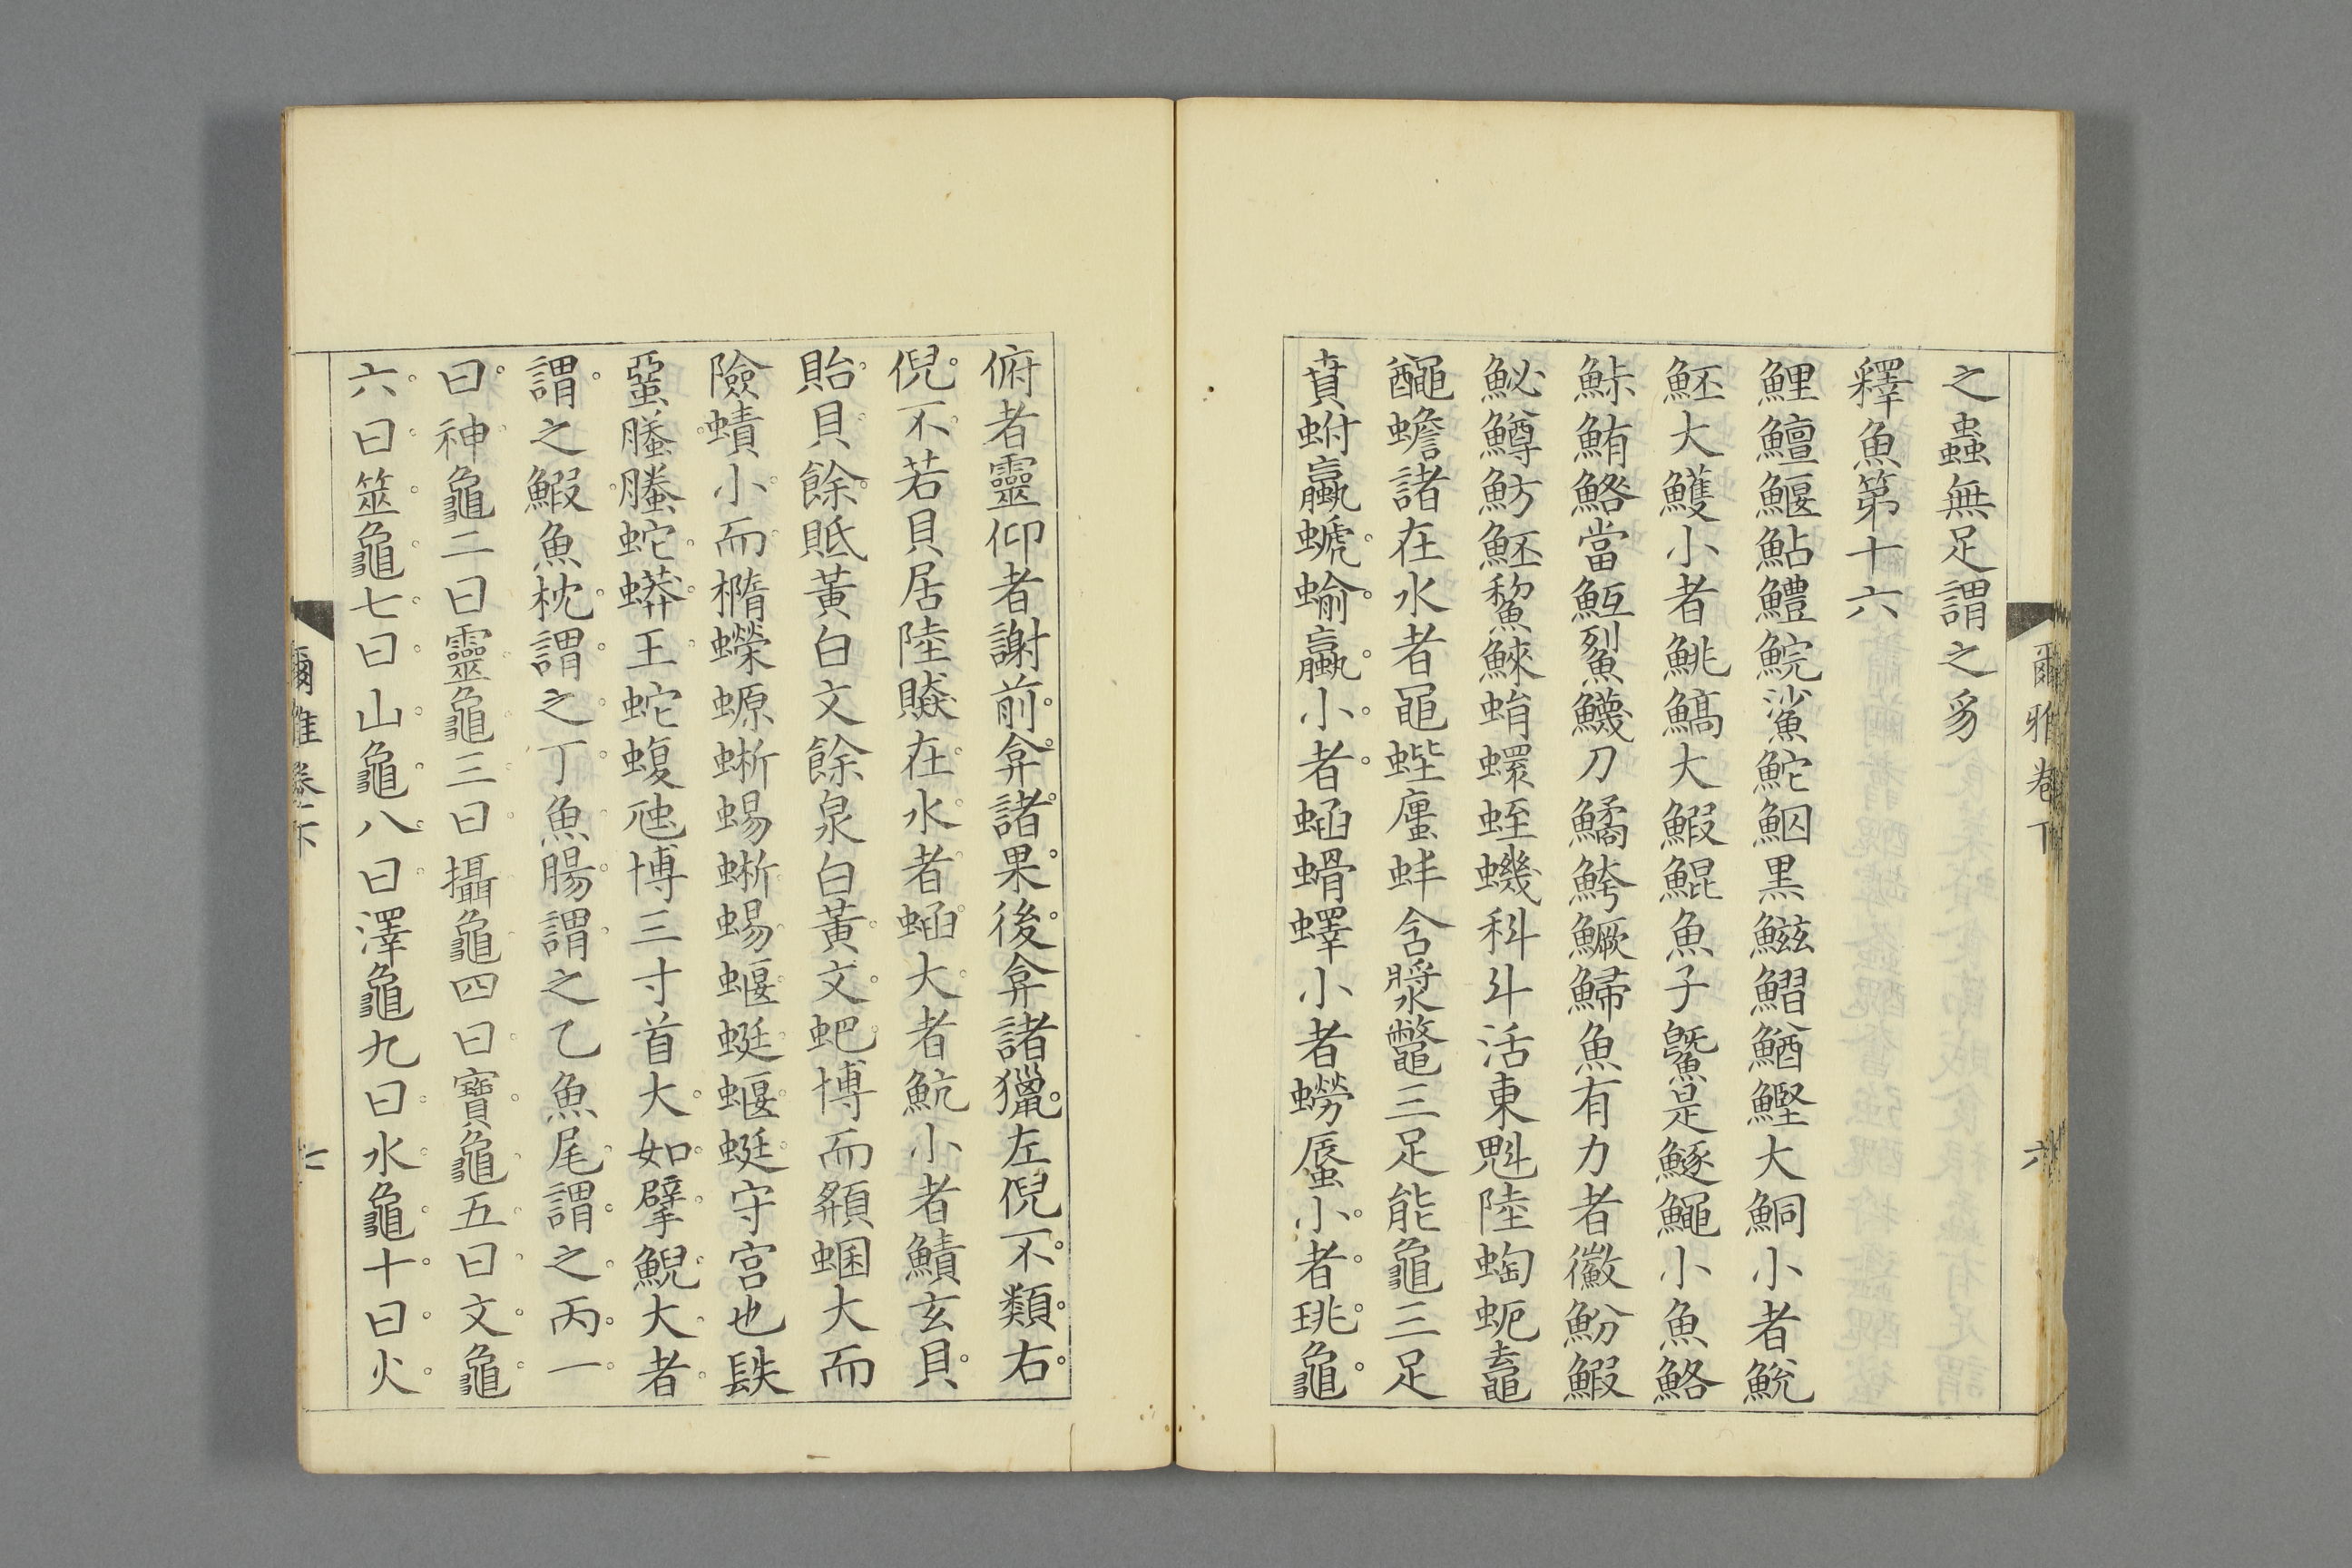 爾雅卷下
六
之蟲無足謂之豸
釋魚第十六
鯉鱣鰋鮎鱧鯇鯊鮀鮂黑鰦鰼鰌鰹大鮦小者鮵
魾大鱯小者鮡鰝大鰕鯤魚子鱀是鱁鱦小魚鮥
鮛鮪鵅當魱鮤鱴刀鱊鮬鱖鯞魚有力者徽魵鰕
鮅鱒魴魾鯬鯠蜎蠉蛭蟣科斗活東魁陸蜪蚅鼁
𪓰蟾諸在水者黽蜌螷蚌含漿鱉三足能龜三足
賁蚹蠃螔蝓蠃小者蜬螖蠌小者蟧蜃小者珧龜
俯者靈仰者謝前弇諸果後弇諸獵左倪不類右
倪不若貝居陸贆在水者蜬大者魧小者鰿玄貝
貽貝餘貾黃白文餘泉白黃文蚆博而頯蜠大而
險蟦小而橢蠑螈蜥蜴蜥蜴蝘蜓蝘蜓守宮也镻
蝁螣螣蛇蟒王蛇蝮虺博三寸首大如擘鯢大者
謂之鰕魚枕謂之丁魚腸謂之乙魚尾謂之丙一
曰神龜二曰靈龜三曰攝龜四曰寶龜五曰文龜
六曰筮龜七曰山龜八曰澤龜九曰水龜十曰火
爾雅卷下
七